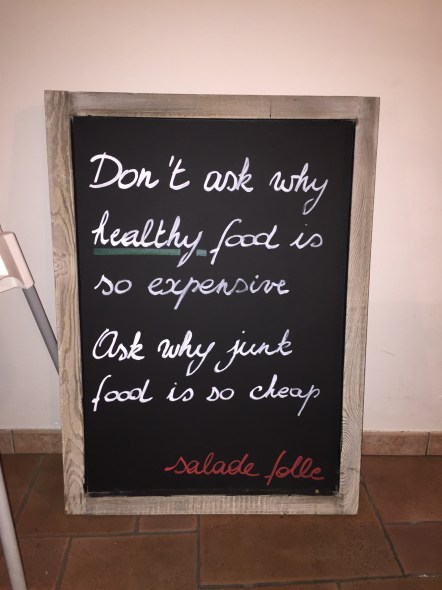 Don't ask why
healthy food is
so expensive
Ask why junk
food is so cheap
salade folle